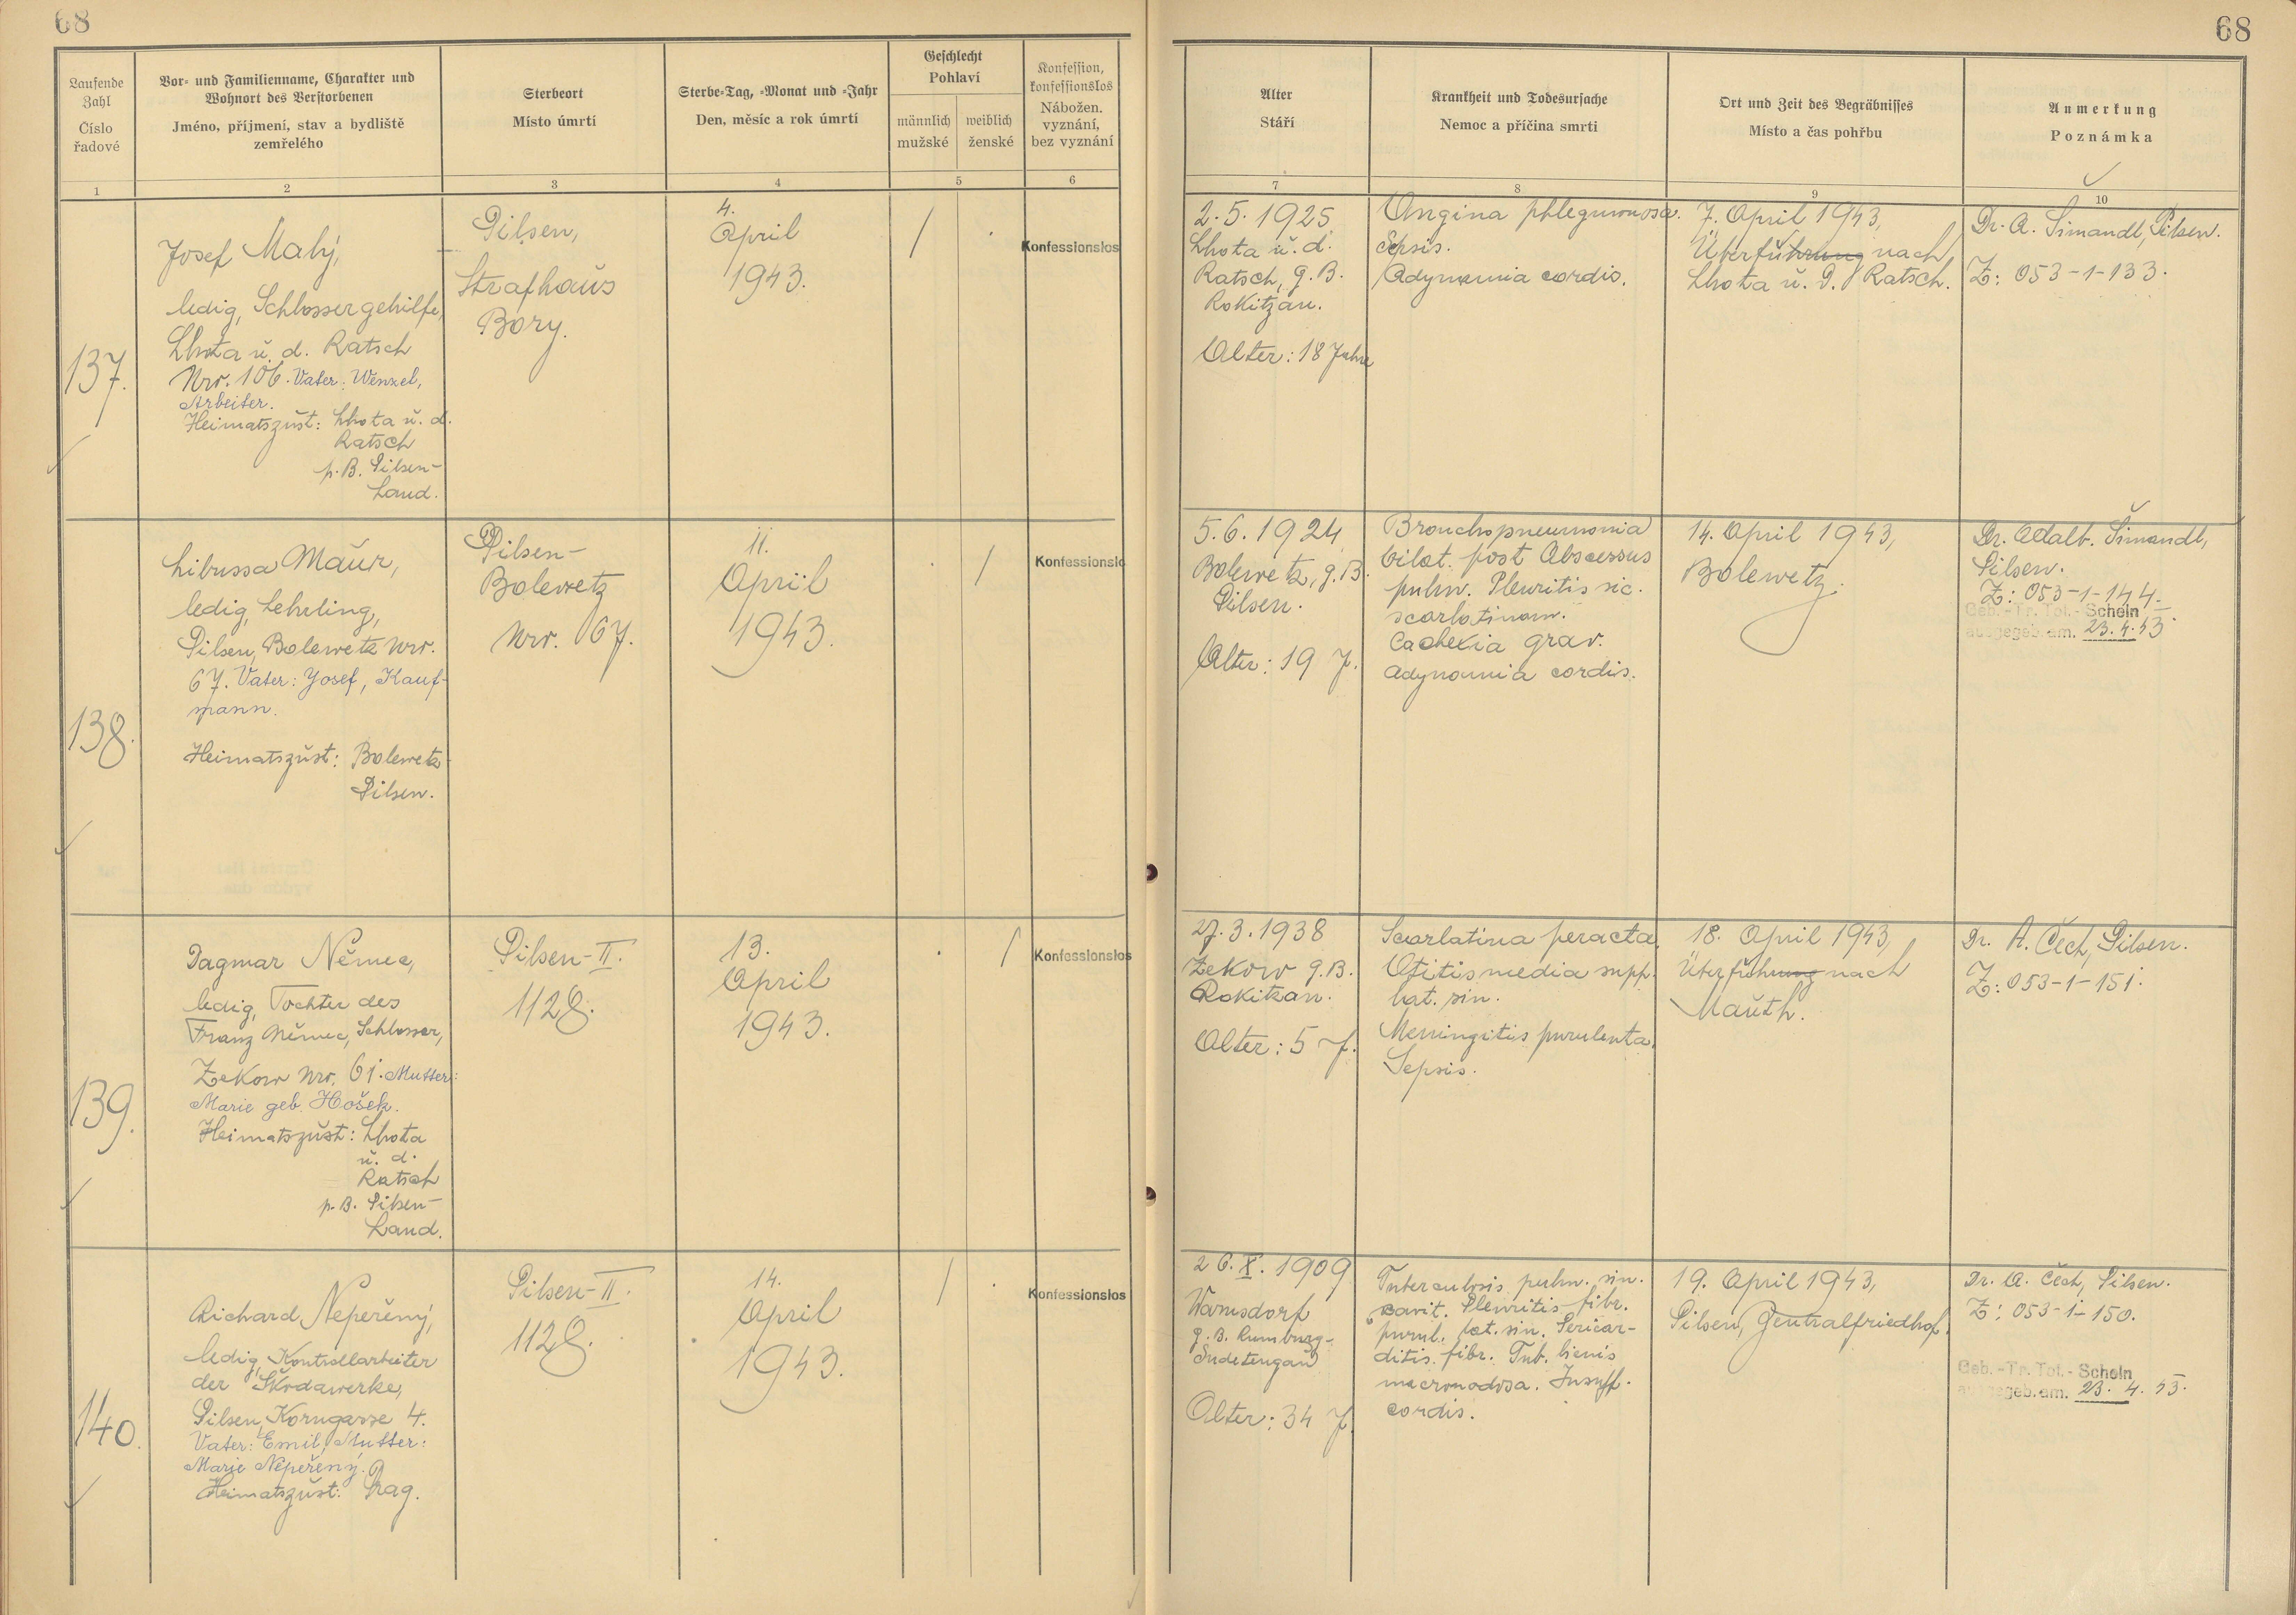 68
68
Laufende
Zahl
Číslo
řadové
Vor- und Familienname, Charakter und
Wohnort des Verstorbenen
Jméno, příjmení, stav a bydliště
zemřelého
Sterbeort
Místo úmrtí
Sterbe-Tag, -Monat und -Jahr
Den, měsíc a rok úmrtí
Geschlecht
Pohlaví
männlich
mužské
weiblich
ženské
Konfession,
konfessionslos
Nábožen.
vyznání,
bez vyznání
Alter
Stáří
Krankheit und Todesursache
Nemoc a příčina smrti
Ort und Zeit des Begräbnisses
Místo a čas pohřbu
Anmerkung
Poznámka
1
2
3
4
5
6
7
8
9
10
137.
Josef Malý,
ledig, Schlossergehilfe,
Lhota ŭ. d. Ratsch
Nrr. 106. Vater: Wenzel,
Arbeiter.
Heimatszŭst: Lhota ŭ. d.
Ratsch
p. B. Pilsen-
Land.
Pilsen,
Strafhaŭs
Bory.
4.
April
1943.
/
Konfessionslos
2.5.1925
Lhota ŭ. d.
Ratsch, g. B.
Rokitzan.
Alter: 18 Jahre
Angina phlegmonosa.
Sepsis.
Adynamia cordis.
7. April 1943,
Überführung nach
Lhota ŭ. D. Ratsch.
Dr. A. Šimandl, Pilsen.
Z: 053-1-133.
138.
Libussa Maŭr,
ledig, Lehrling,
Pilsen, Bolewetz Nrr.
67. Vater: Josef, Kauf-
mann.
Heimatszŭst: Bolewetz-
Pilsen.
Pilsen-
Bolewetz
Nrr. 67.
11.
April
1943.
/
Konfessionslo
5.6.1924
Bolewetz, g. B.
Pilsen.
Alter: 19 J.
Bronchopneumonia
bilat. post Abscessus
pulm. Pleuritis sic.
scarlatinam.
Cachexia grav.
Adynamia cordis.
14. April 1943,
Bolewetz.
Dr. Adalb. Šimandl,
Pilsen.
Z: 053-1-144.
Geb.-Tr. Tot.-Schein
ausgegeb. am. 23.4.43.
139.
Dagmar Němec,
ledig, Tochter des
Franz Němec, Schlosser,
Zekow Nrr. 61. Mutter:
Marie geb. Hošek.
Heimatszŭst: Lhota
ŭ. d.
Ratsch
p. B. Pilsen-
Land.
Pilsen-II.
1128.
13.
April
1943.
/
Konfessionslos
27.3.1938
Zekow g. B.
Rokitzan.
Alter: 5 J.
Scarlatina peracta.
Otitis media supp.
lat. sin.
Meningitis purulenta.
Sepsis.
18. April 1943,
Überführung nach
Maŭth.
Dr. A. Čech, Pilsen.
Z: 053-1-151.
140.
Richard Nepeřený,
ledig, Kontrollarbeiter
der Škodawerke,
Pilsen, Korngasse 4.
Vater: Emil, Mutter:
Marie Nepeřený.
Heimatszŭst: Prag.
Pilsen-II.
1128.
14.
April
1943.
/
Konfessionslos
26.X.1909
Warnsdorf
g. B. Rumburg-
Sudetengaŭ
Alter: 34 J.
Tuberculosis pulm. sin.
cavit. Pleuritis fibr.
purul. lat. sin. Pericar-
ditis fibr. Tub. lienis
macronodosa. Insuff.
cordis.
19. April 1943,
Pilsen, Zentralfriedhof.
Dr. A. Čech, Pilsen.
Z: 053-1-150.
Geb.-Tr. Tot.-Schein
ausgegeb. am. 23. 4. 43.